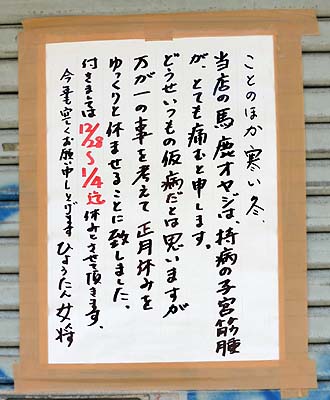 ことのほか寒い冬、
当店の馬鹿オヤジは、持病の子宮筋腫
が、とても痛むと申します。
どうせいつもの仮病だとは思いますが
万が一の事を考えて正月休みを
ゆっくりと休ませることに致しました。
付きましては12/28〜1/4迄休みとさせて頂きます。
今季も宜しくお願い申し上げます ひょうたん女将